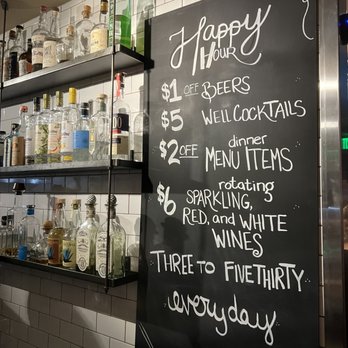 Happy
Hour
$1 OFF BEERS
$5 WELL COCKTAILS
$2 OFF dinner
MENU ITEMS
$6 rotating
SPARKLING,
RED, and WHITE
WINES
THREE TO FIVETHIRTY
everyday